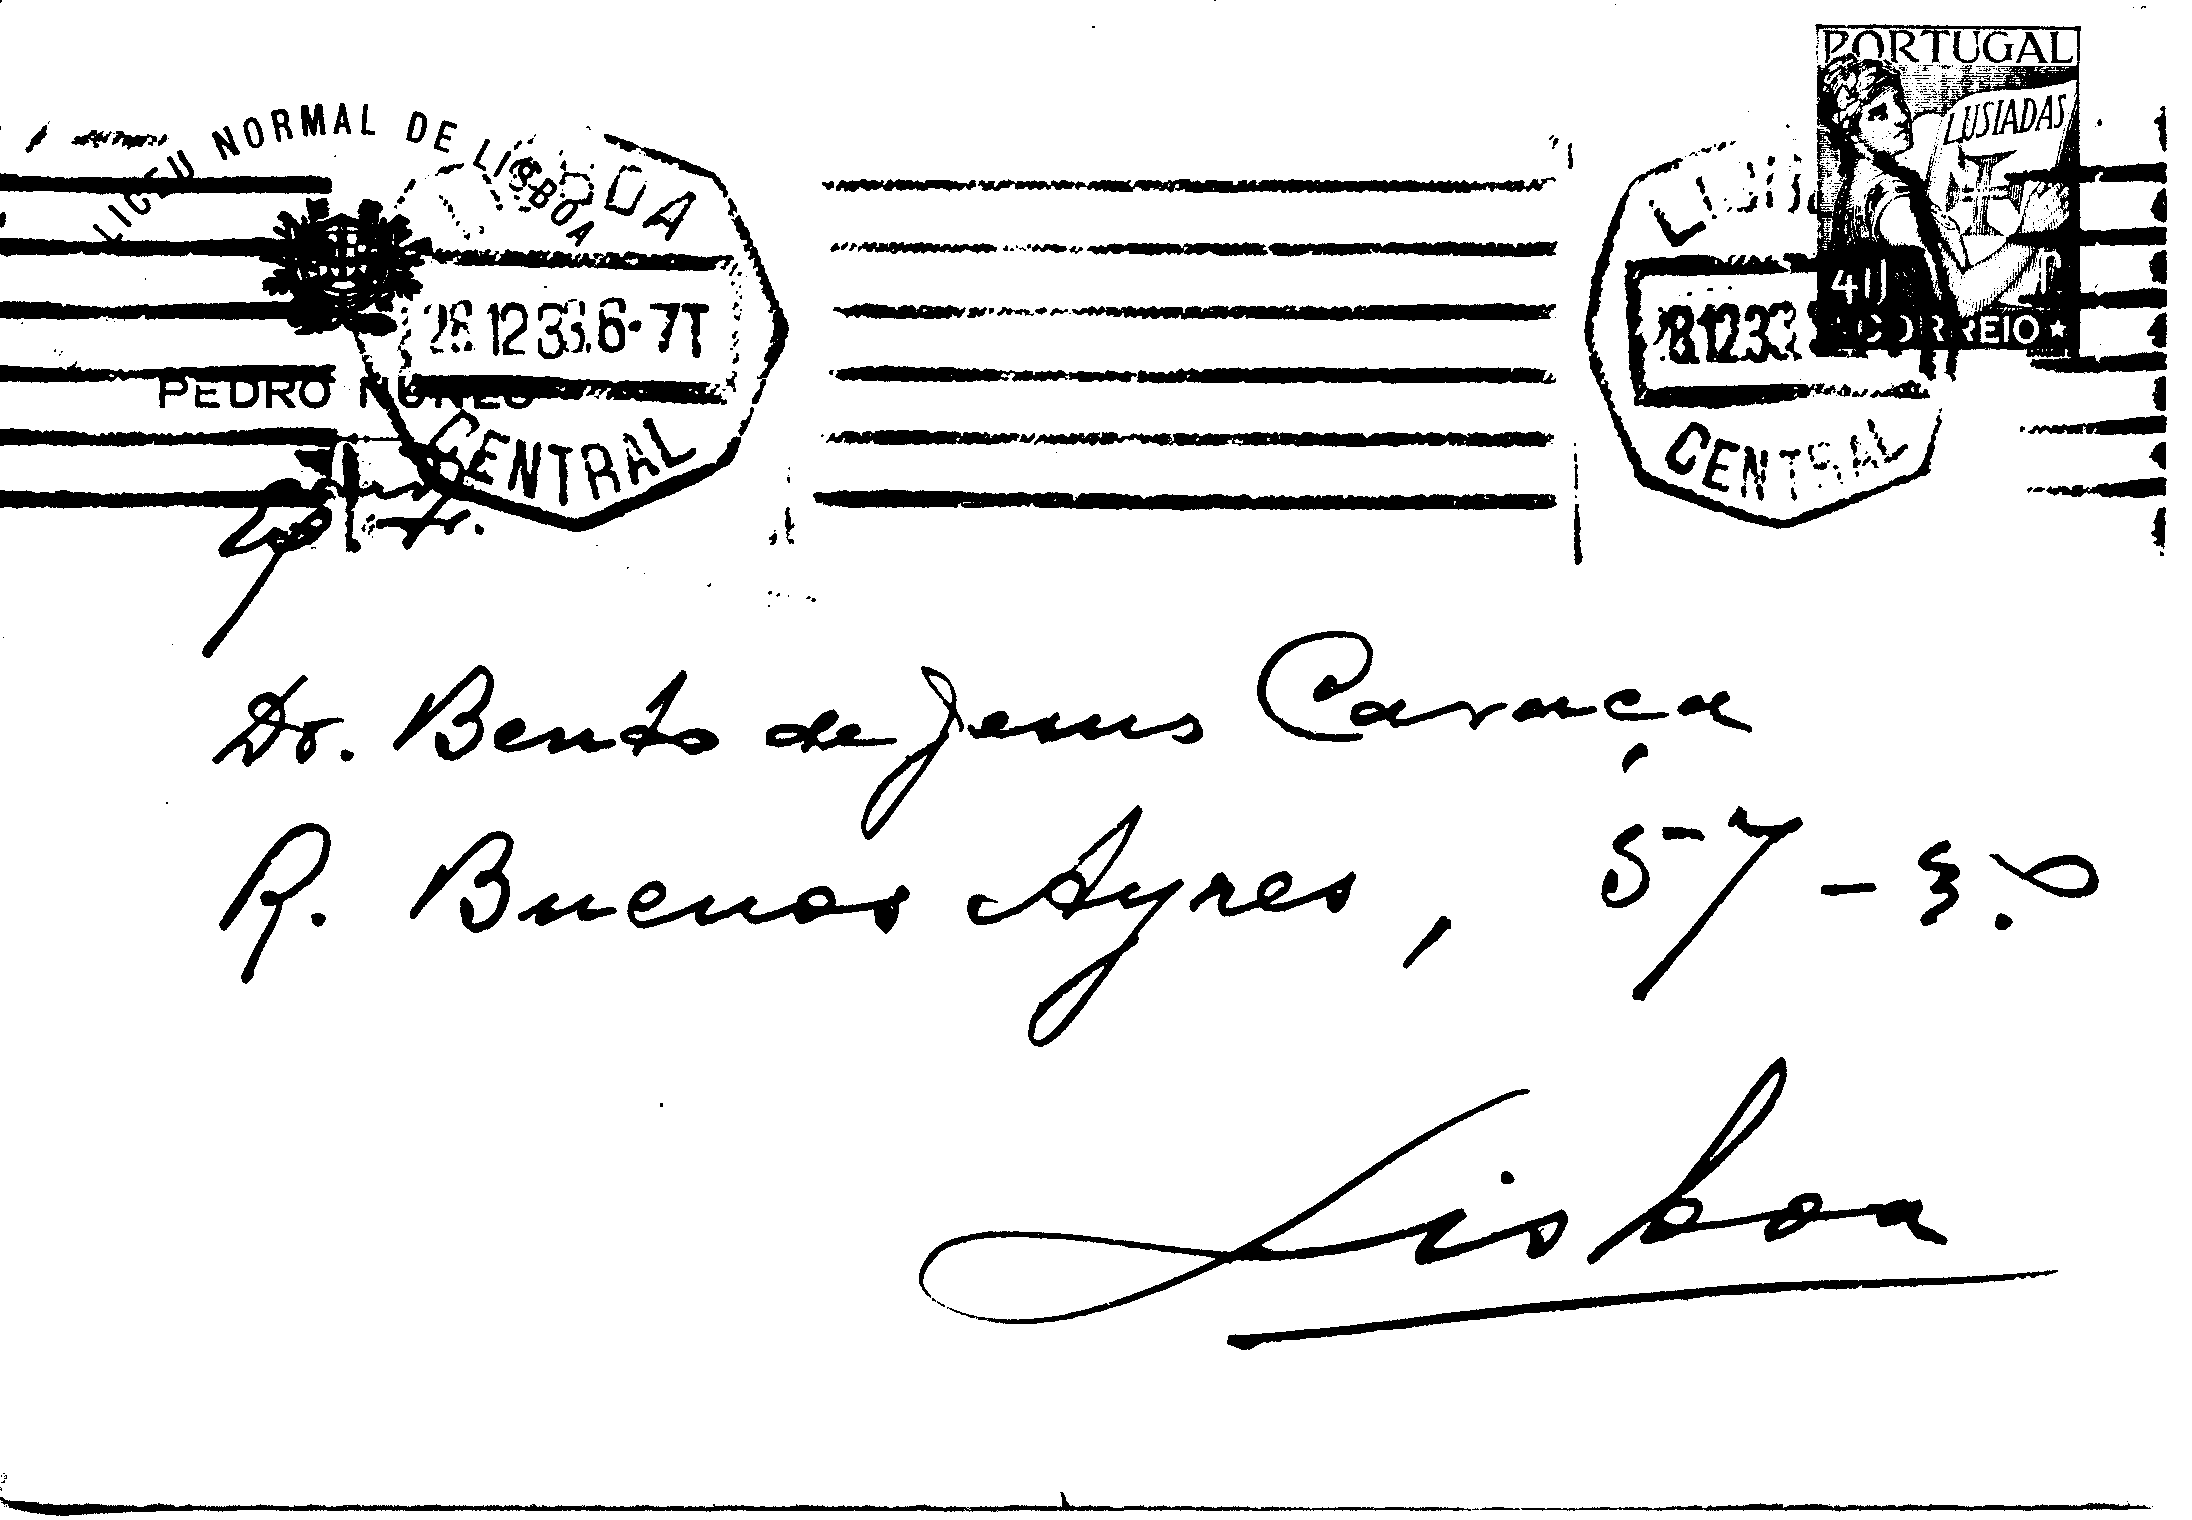 PORTUGAL
LUSIADAS
CORREIO
LICEU NORMAL DE LISBOA
PEDRO NUNES
LISBOA
6-7T
CENTRAL
CENTRAL
Dr. Bento de Jesus Caraça
R. Buenos Ayres, 57-3.º
Lisboa